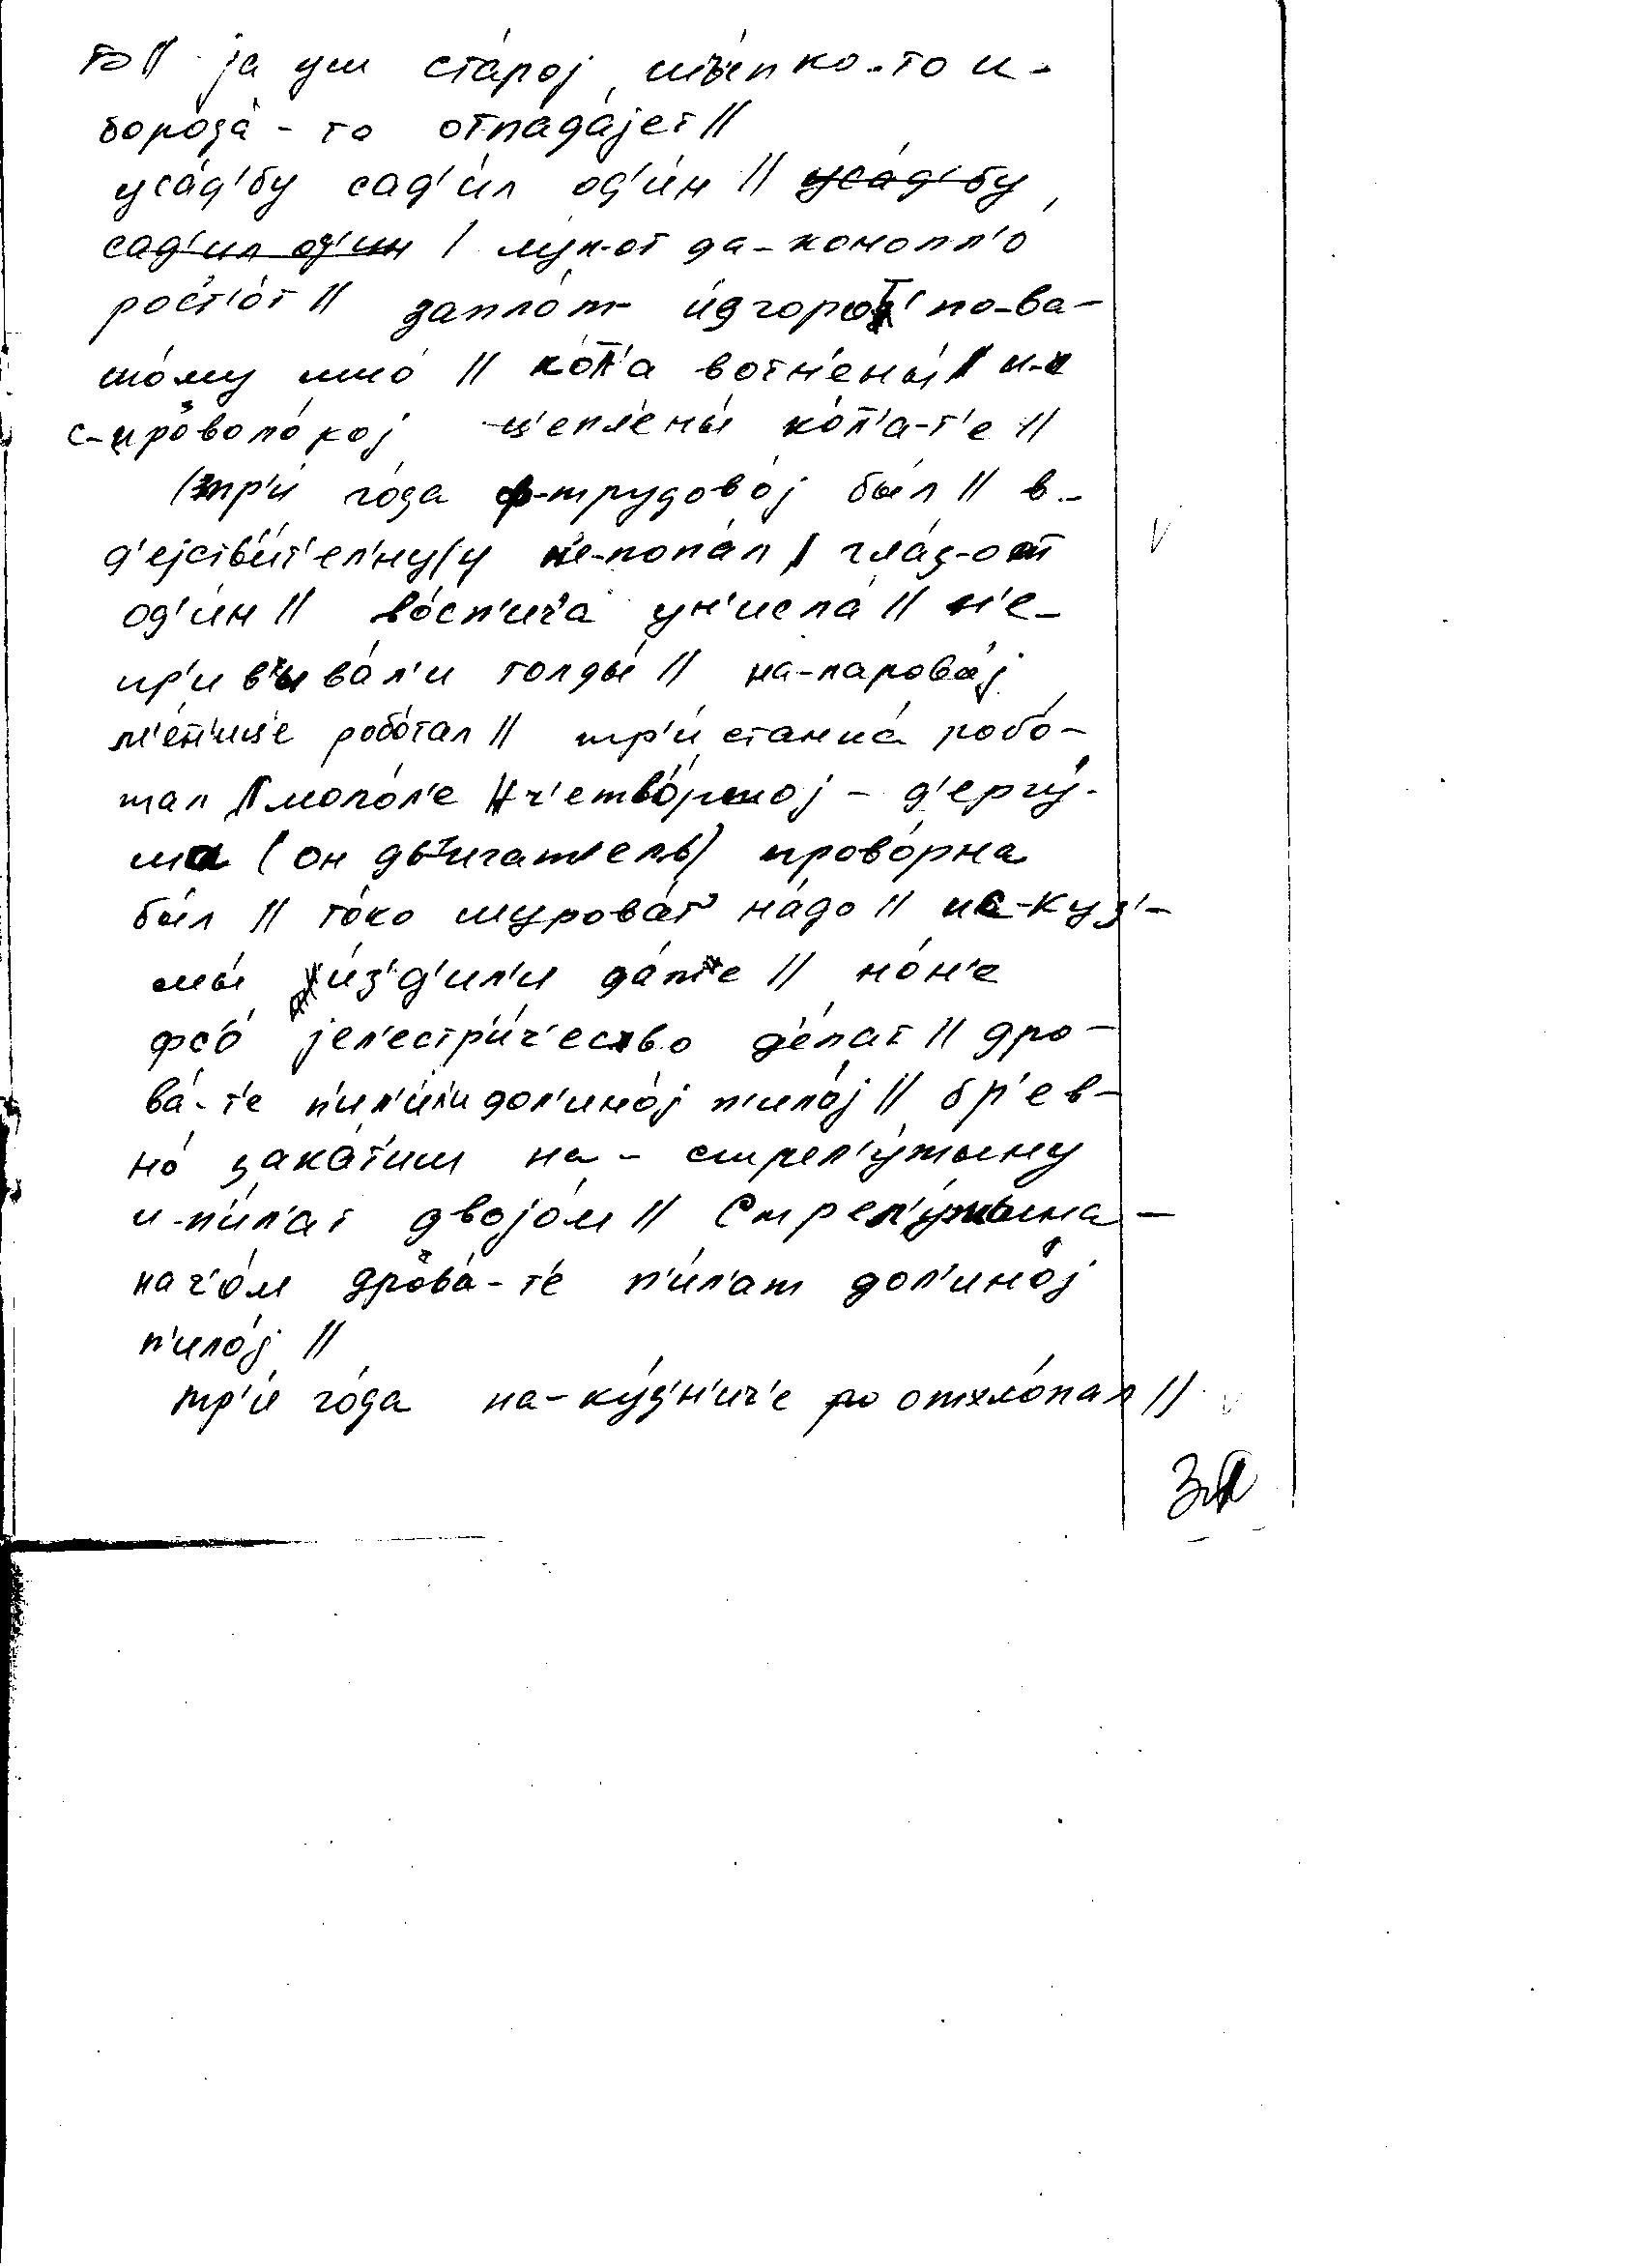 то // ја уш ста́рој, шы́пко-то и-
борода́-то отпада́јет //
уса́д'бу сад'и́л од'и́н // уса́д'бу
сад'ил од'ин / лу́к-от да-конопл'о
рост'о́т // запло́т и́згород' по-ва-
шо́му што́ // ко́л'а вотн'ены́ // и-
с-проволо́кој ц'епл'ены́ ко́л'а-т'е //
тр'и́ го́да ф-трудово́ј бы́л // в-
д'ејств'и́т'ел'нуjу н'е-попа́л / гла́з-от
од'и́н // во́сп'ича ун'исла́ // н'е-
пр'изыва́л'и толды́ // на-парово́ј
м'е́л'ниц'е робо́тал // тр'и́ станка́ робо́-
тал // моло́л'е // ч'етво́ртој - д'ергу́-
ша (он двигатель) прово́рна
бы́л // то́ко шурова́т' на́до // ис-Куз'-
мы́ и́з'д'ил'и да́же // но́н'е
фс'о́ јел'естр'и́ч'ество д'е́лат // дро-
ва́-т'е п'ил'и́л'и дол'ино́ј п'ило́ј // бр'ев-
но́ зака́т'иш на-стрел'у́жыну
и-п'и́л'ат двојо́м // Стрел'у́жына -
на ч'о́м дрова́-т'е п'и́л'ат дол'ино́ј
п'ило́ј //
тр'и́ го́да на-ку́з'н'ич'е отхло́пал //